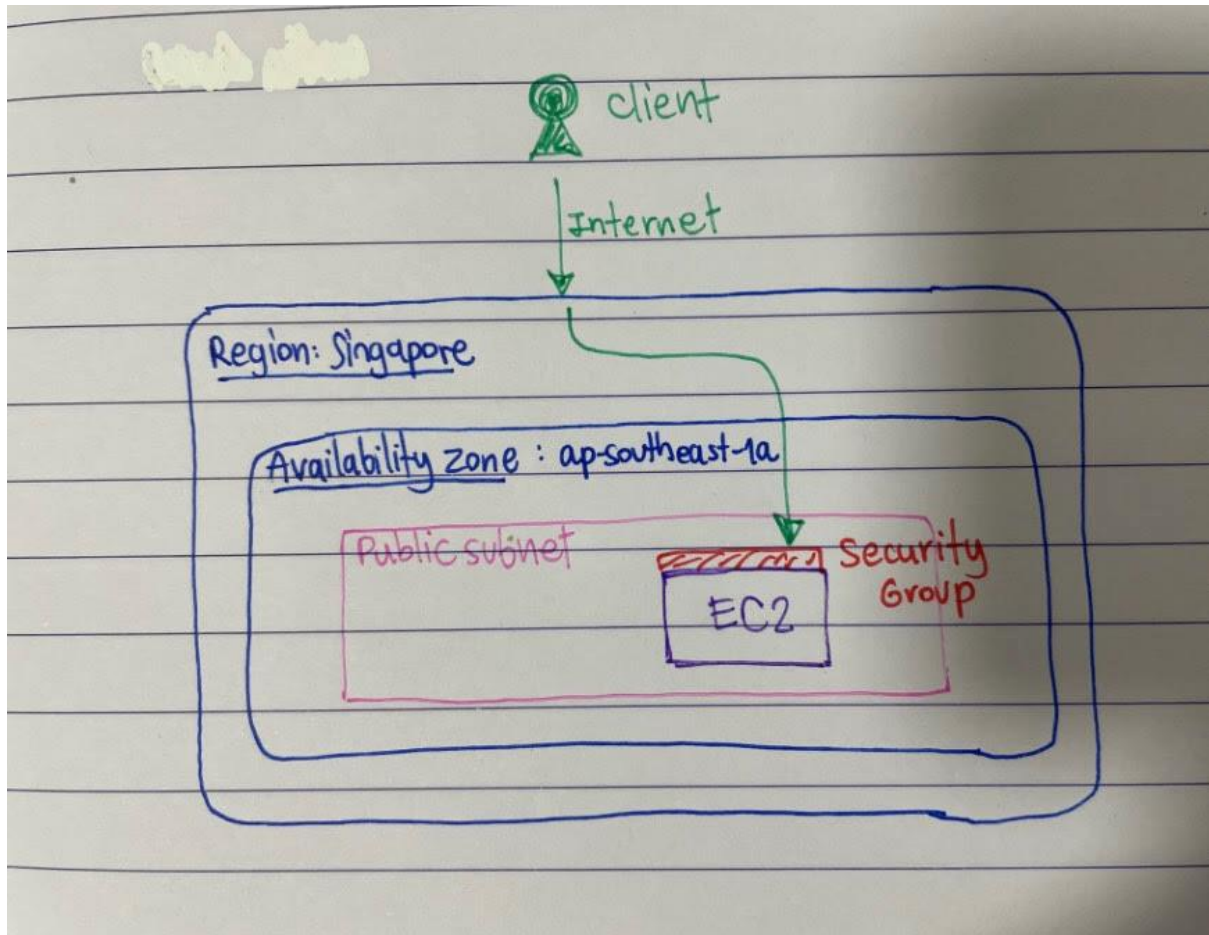 client
Internet
Region: Singapore
Availability zone : ap-southeast-1a
Public subnet
Security
Group
EC2